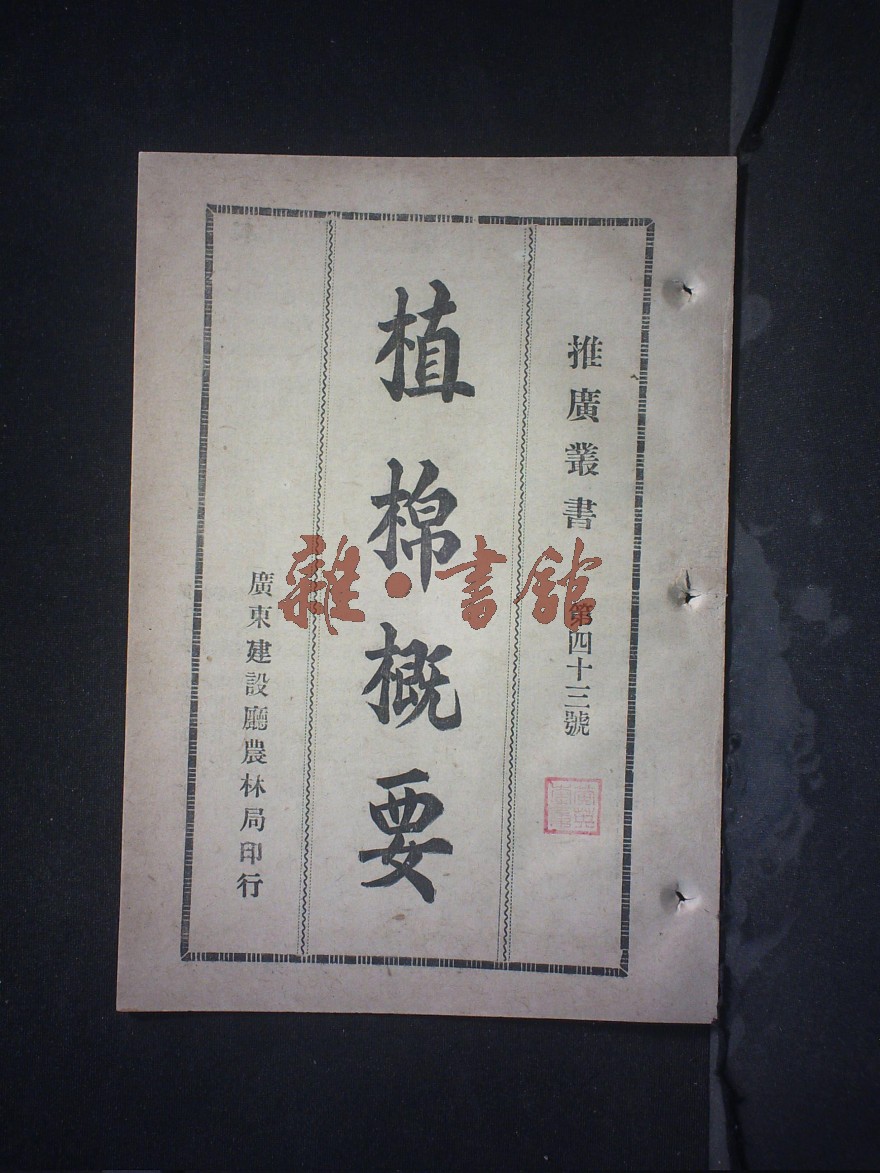 推廣叢書 第四十三號
植棉概要
廣東建設廳農林局印行
雜·書館